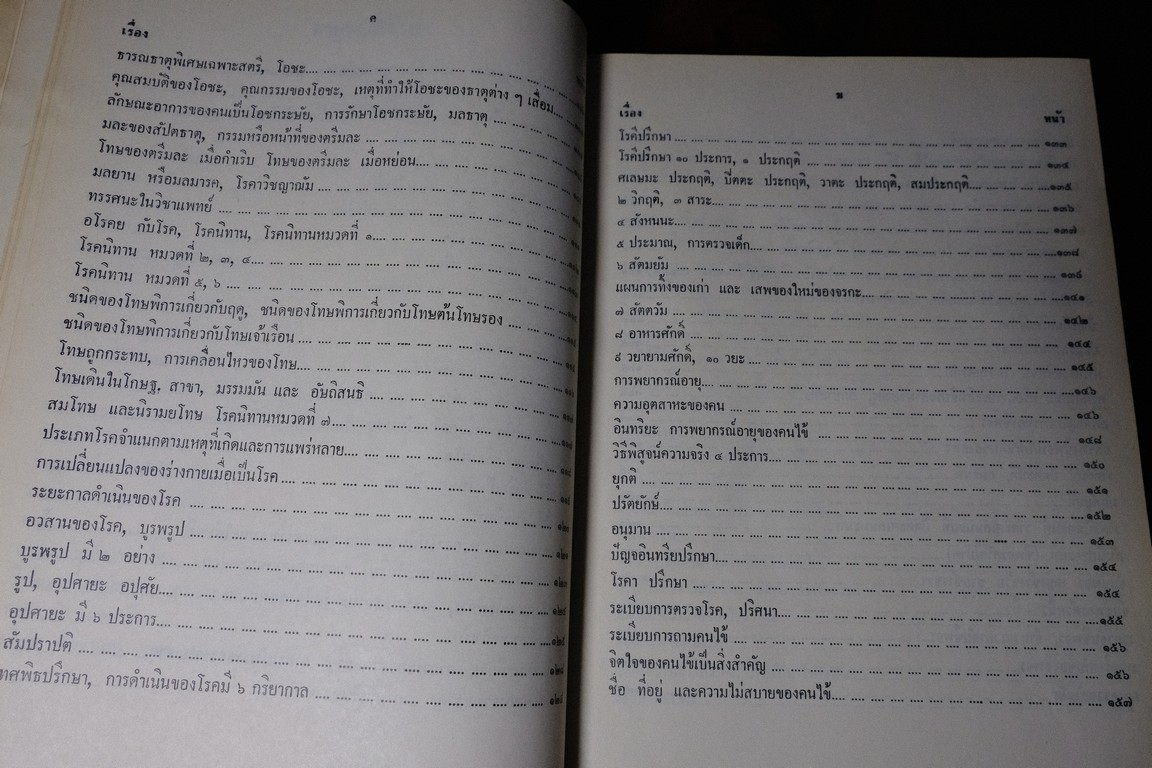 ค
เรื่อง
ธารณธาตุพิเศษเฉพาะสตรี, โอชะ
คุณสมบัติของโอชะ, คุณกรรมของโอชะ, เหตุที่ทำให้โอชะของธาตุต่าง ๆ เสื่อม
ลักษณะอาการของคนเป็นโอชกระษัย, การรักษาโอชกระษัย, มลธาตุ
มละของสัปตธาตุ, กรรมหรือหน้าที่ของตรีมละ
โทษของตรีมละ เมื่อกำเริบ โทษของตรีมละ เมื่อหย่อน
มลยาน หรือมลมารค, โรคาวิชญาณัม
ทรรศนะในวิชาแพทย์
อโรคย กับโรค, โรคนิทาน, โรคนิทานหมวดที่ ๑
โรคนิทาน หมวดที่ ๒, ๓, ๔
โรคนิทาน หมวดที่ ๕, ๖
ชนิดของโทษพิการเกี่ยวกับฤดู, ชนิดของโทษพิการเกี่ยวกับโทษต้นโทษรอง
ชนิดของโทษพิการเกี่ยวกับโทษเจ้าเรือน
โทษถูกกระทบ, การเคลื่อนไหวของโทษ
โทษเดินในโกษฐ, สาขา, มรรมมัน และ อัษถิสนธิ
สมโทษ และนิรามยโทษ โรคนิทานหมวดที่ ๗
ประเภทโรคจำแนกตามเหตุที่เกิดและการแพร่หลาย
การเปลี่ยนแปลงของร่างกายเมื่อเป็นโรค
ระยะกาลดำเนินของโรค
อวสานของโรค, บูรพรูป
บูรพรูป มี ๒ อย่าง
รูป, อุปศายะ อปุศัย
อุปศายะ มี ๖ ประการ
สัมปราปติ
ทศพิธปรึกษา, การดำเนินของโรคมี ๖ กริยากาล
ฆ
เรื่อง หน้า
โรคีปรึกษา ๑๓๓
โรคีปรึกษา ๑๐ ประการ, ๑ ประกฤติ ๑๓๔
ศเลษมะ ประกฤติ, ปิตตะ ประกฤติ, วาตะ ประกฤติ, สมประกฤติ ๑๓๕
๒ วิกฤติ, ๓ สาระ ๑๓๖
๔ สังหนนะ ๑๓๗
๕ ประมาณ, การตรวจเด็ก ๑๓๘
๖ สัตมยัม ๑๓๙
แผนการทิ้งของเก่า และ เสพของใหม่ของจรกะ ๑๔๑
๗ สัตตวัม ๑๔๒
๘ อาหารศักดิ์ ๑๔๔
๙ วยายามศักดิ์, ๑๐ วยะ ๑๔๕
การพยากรณ์อายุ ๑๔๖
ความอุตสาหะของคน ๑๔๖
อินทริยะ การพยากรณ์อายุของคนไข้ ๑๔๘
วิธีพิสูจน์ความจริง ๔ ประการ ๑๕๐
ยุกติ ๑๕๑
ปรัตยักษ์ ๑๕๒
อนุมาน ๑๕๓
ปัญจอินทรียปรึกษา ๑๕๔
โรคา ปรึกษา ๑๕๔
ระเบียบการตรวจโรค, ปริศนา ๑๕๕
ระเบียบการถามคนไข้ ๑๕๖
จิตใจของคนไข้เป็นสิ่งสำคัญ ๑๕๖
ชื่อ ที่อยู่ และความไม่สบายของคนไข้ ๑๕๗